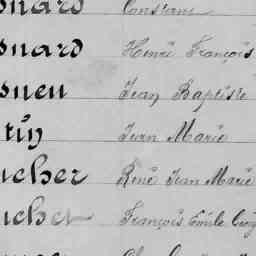 onard Constant
onard Henri François
sneu Jean Baptiste
tin Jean Marie
ucher René Jean Marie
uchet François Emile